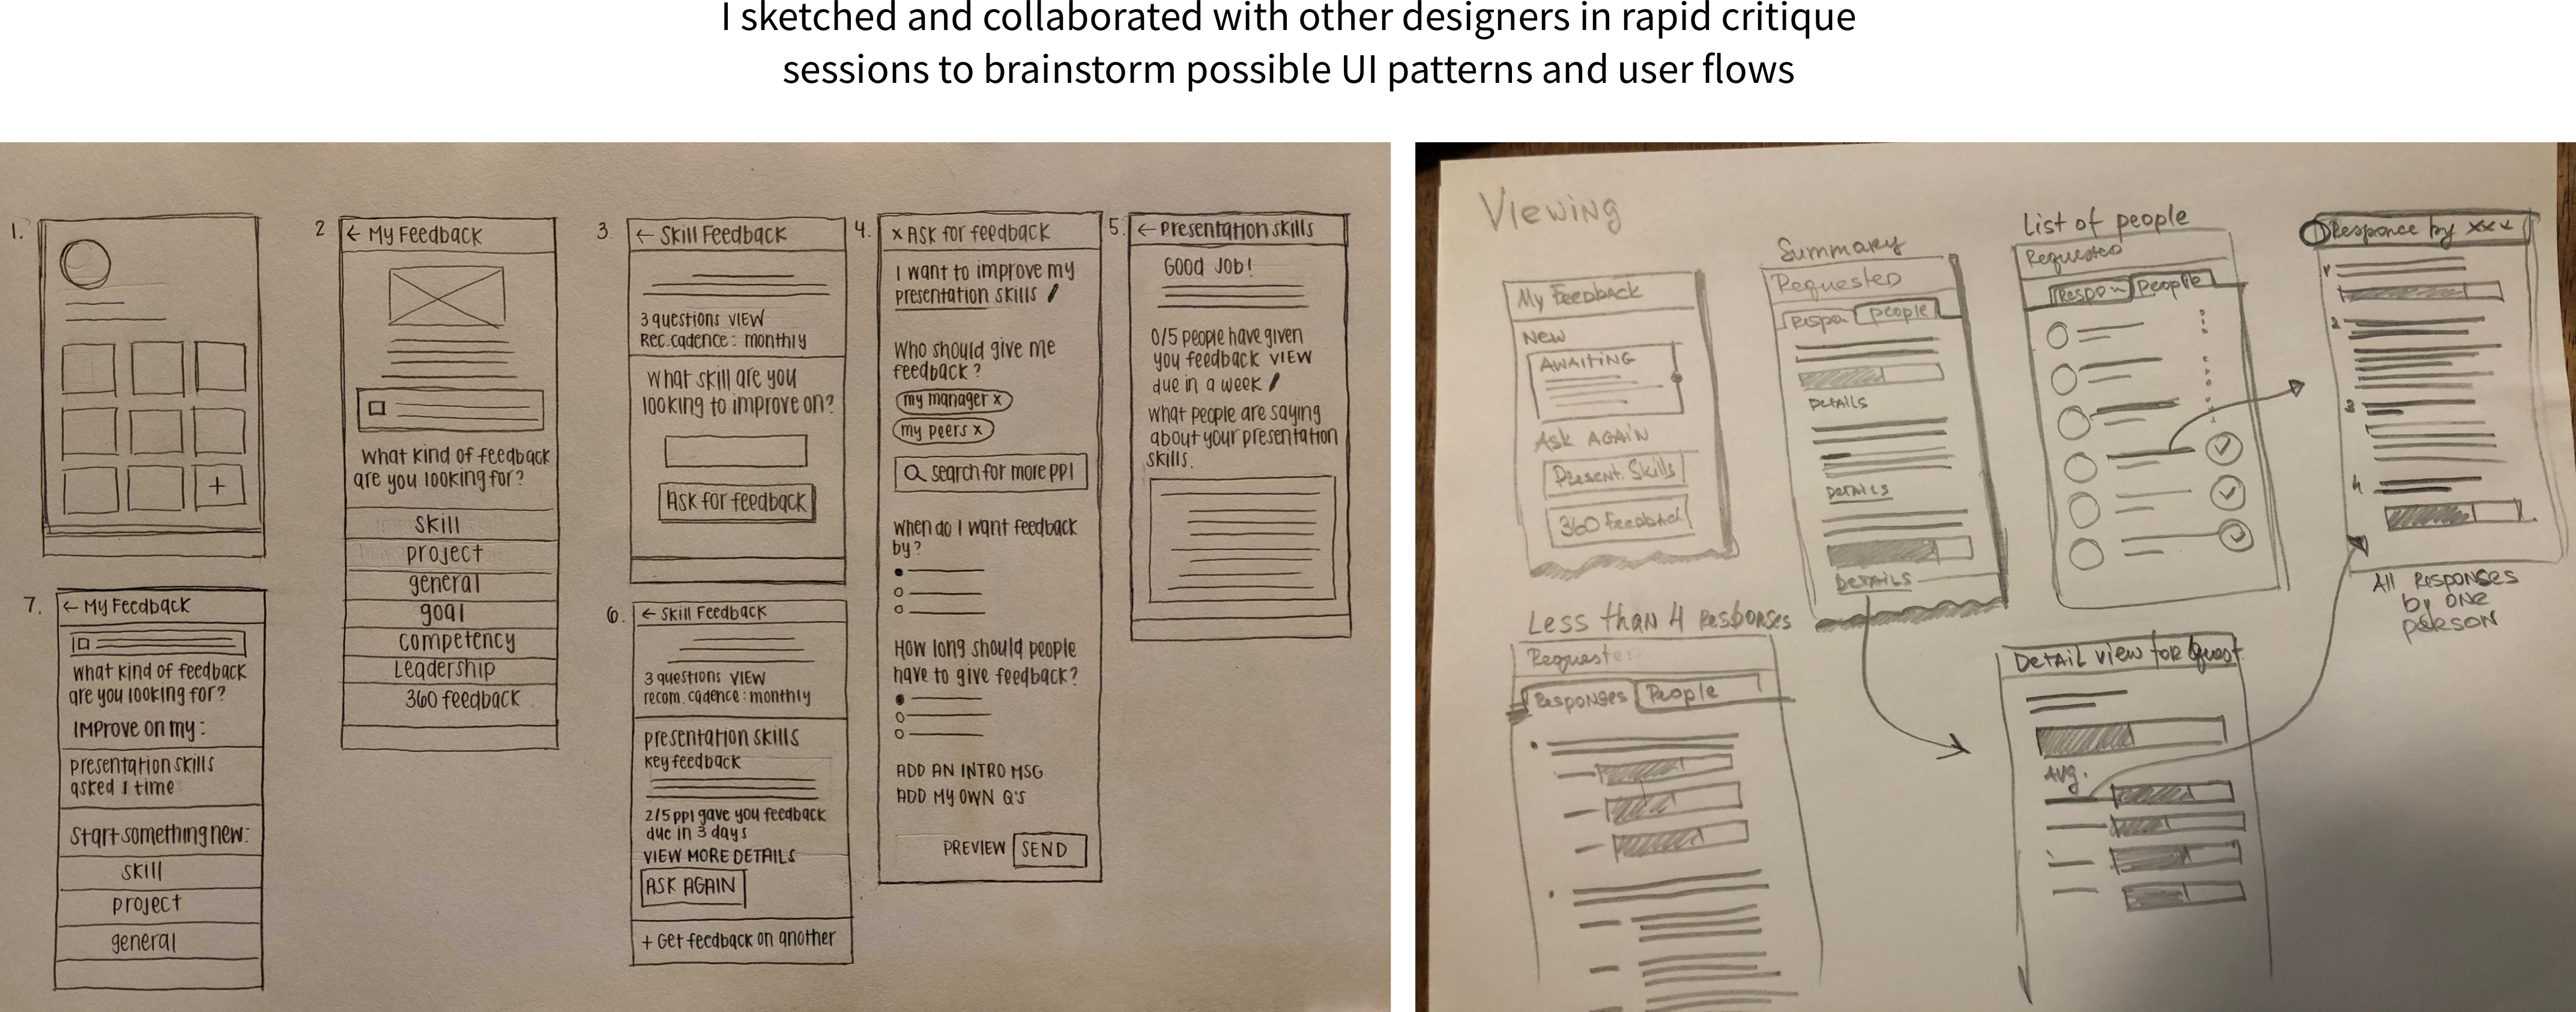 I sketched and collaborated with other designers in rapid critique
sessions to brainstorm possible UI patterns and user flows
1.
+
2
← My Feedback
What kind of feedback
are you looking for?
skill
project
general
goal
competency
Leadership
360 feedback
3.
← Skill Feedback
3 questions VIEW
Rec. cadence: monthly
What skill are you
looking to improve on?
Ask for feedback
4.
x Ask for feedback
I want to improve my
presentation skills
Who should give me
feedback?
my manager x
my peers x
search for more ppl
When do I want feedback
by?
How long should people
have to give feedback?
ADD AN INTRO MSG
ADD MY OWN Q'S
PREVIEW SEND
5.
← Presentation skills
GOOD JOB!
0/5 people have given
you feedback VIEW
due in a week
What people are saying
about your presentation
skills.
6.
← Skill Feedback
3 questions VIEW
recom. cadence: monthly
presentation skills
key feedback
2/5 ppl gave you feedback
due in 3 days
VIEW MORE DETAILS
ASK AGAIN
+ Get feedback on another
7.
← My Feedback
What kind of feedback
are you looking for?
Improve on my:
presentation skills
asked 1 time
Start something new:
skill
project
general
Viewing
My Feedback
New
AWAITING
Ask AGAIN
Present. Skills
360 Feedback
Summary
Requested
Respon People
DETAILS
DETAILS
DETAILS
List of people
Requested
Respon People
Responce by xxx
2
3
4
All Responses
by one
person
Less than 4 Responses
Requester
Responses People
Detail view for Quest.
Avg.